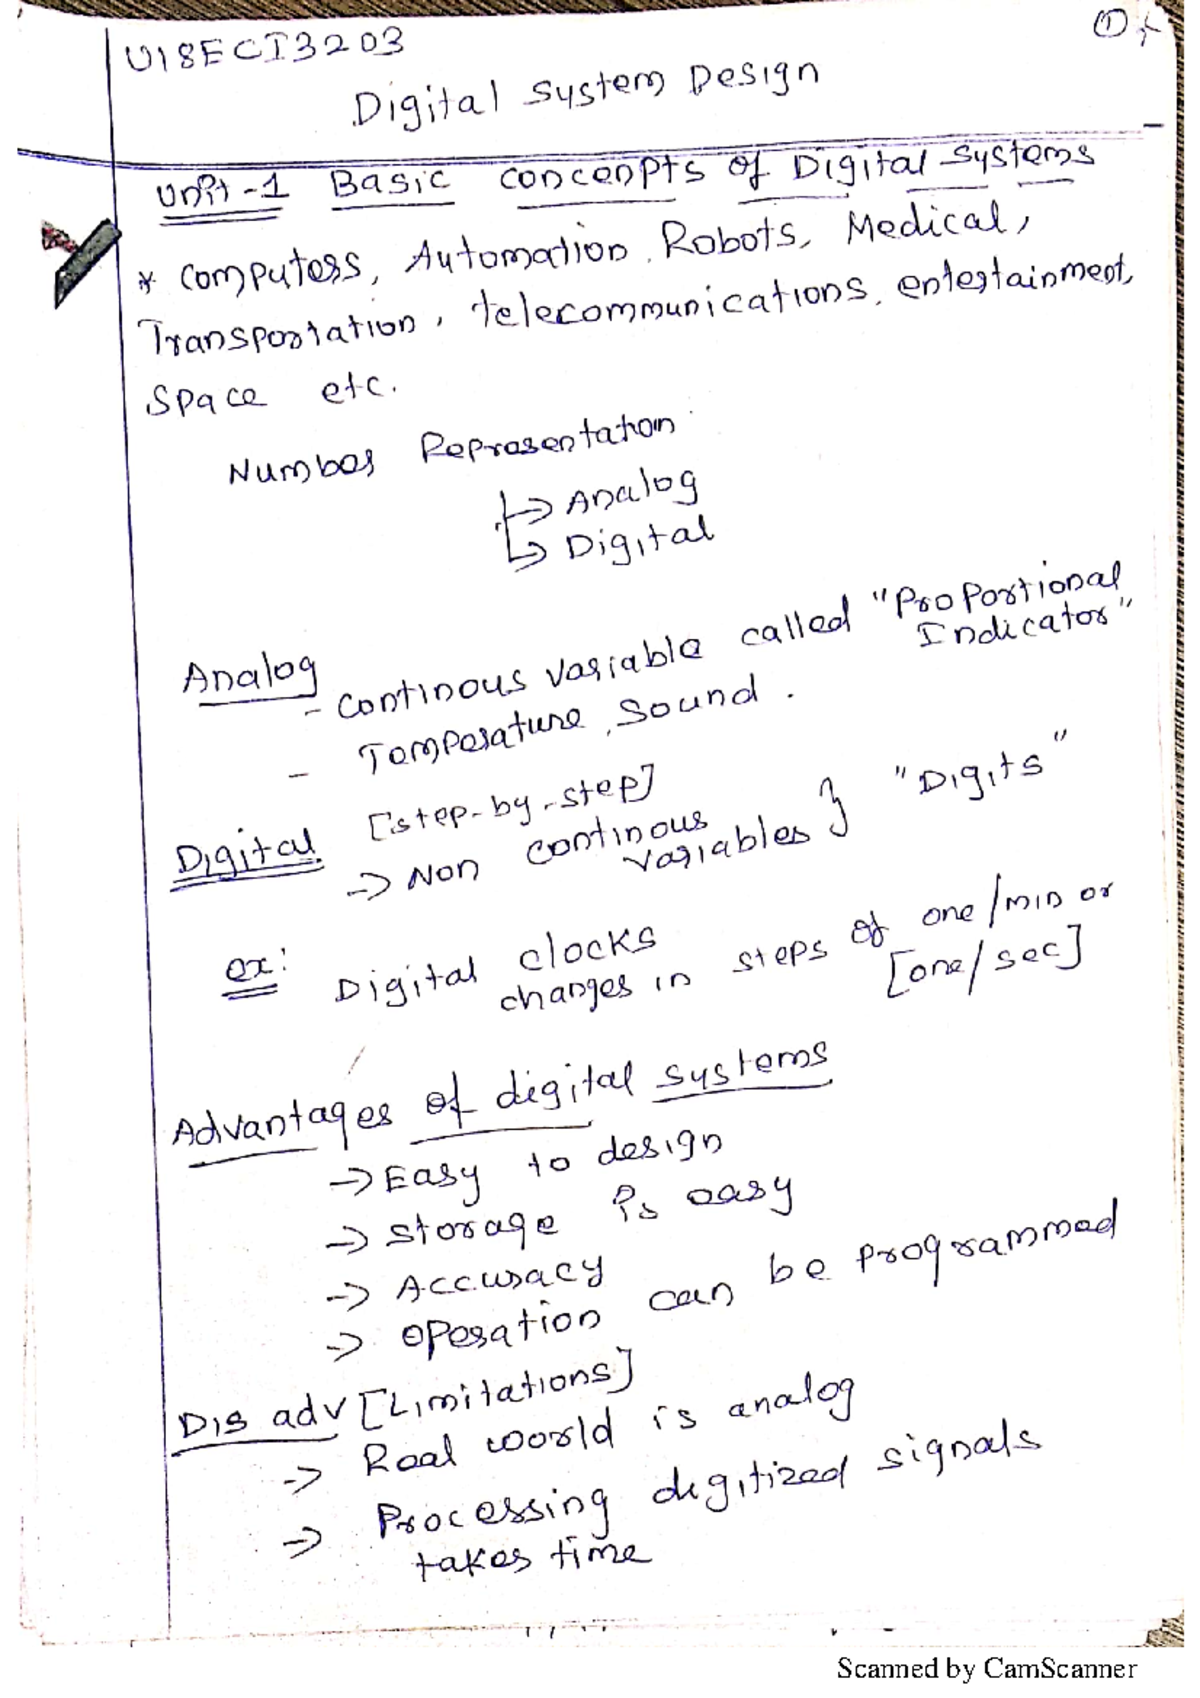 ①
U18ECI3203
Digital System Design
Unit-1 Basic concenpts of Digital Systems
* Computers, Automation, Robots, Medical,
Transportation, Telecommunications, entertainment,
Space etc.
Number Representation
→ Analog
→ Digital
Analog
- Continous variable called "Proportional
Indicator"
- Temperature, Sound.
Digital [step-by-step]
→ Non continous
variables } "Digits"
ex: Digital clocks
changes in steps of one/min or
[one/sec]
Advantages of digital systems
→ Easy to design
→ Storage is easy
→ Accuracy
→ Operation can be programmed
Dis adv [Limitations]
→ Real world is analog
→ Processing digitized signals
takes time
Scanned by CamScanner